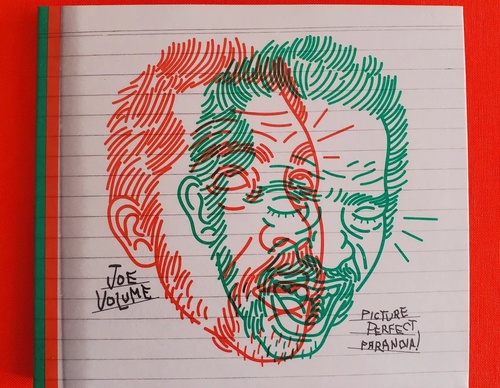 JOE
VOLUME
PICTURE
PERFECT
PARANOIA!